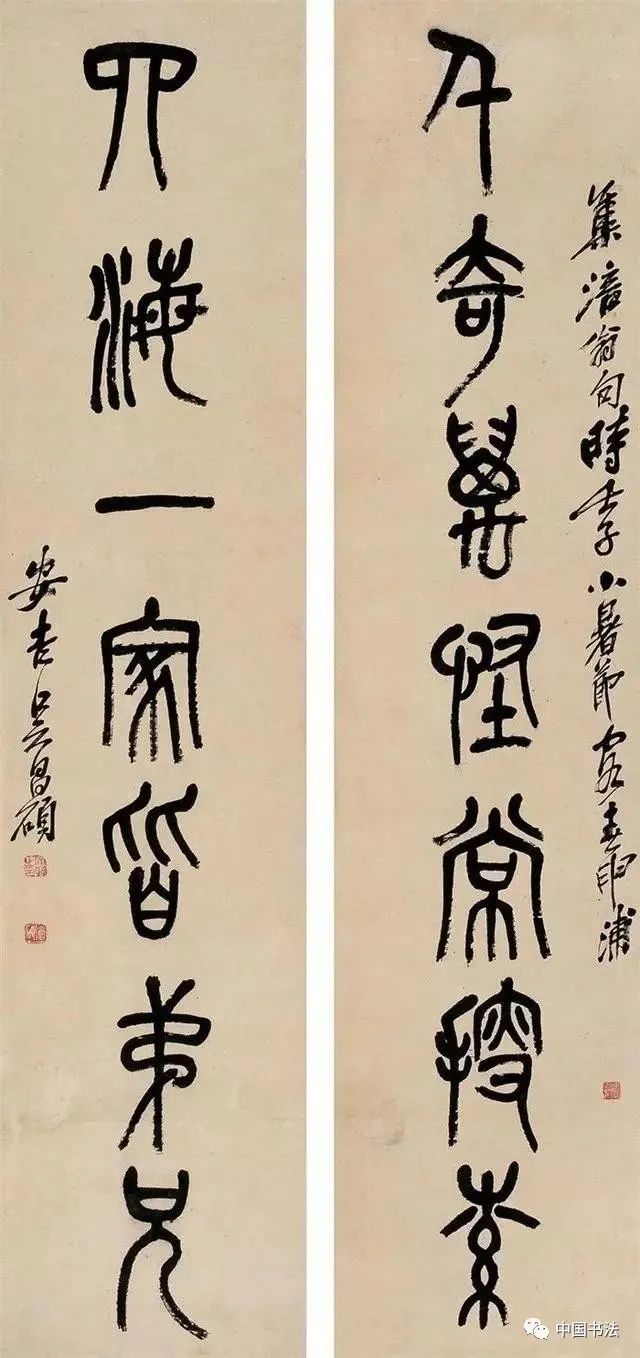 集涪翁句時壬子小暑節客春申浦
千奇萬怪常搜索
四海一家皆弟兄
安吉吳昌碩
中国书法